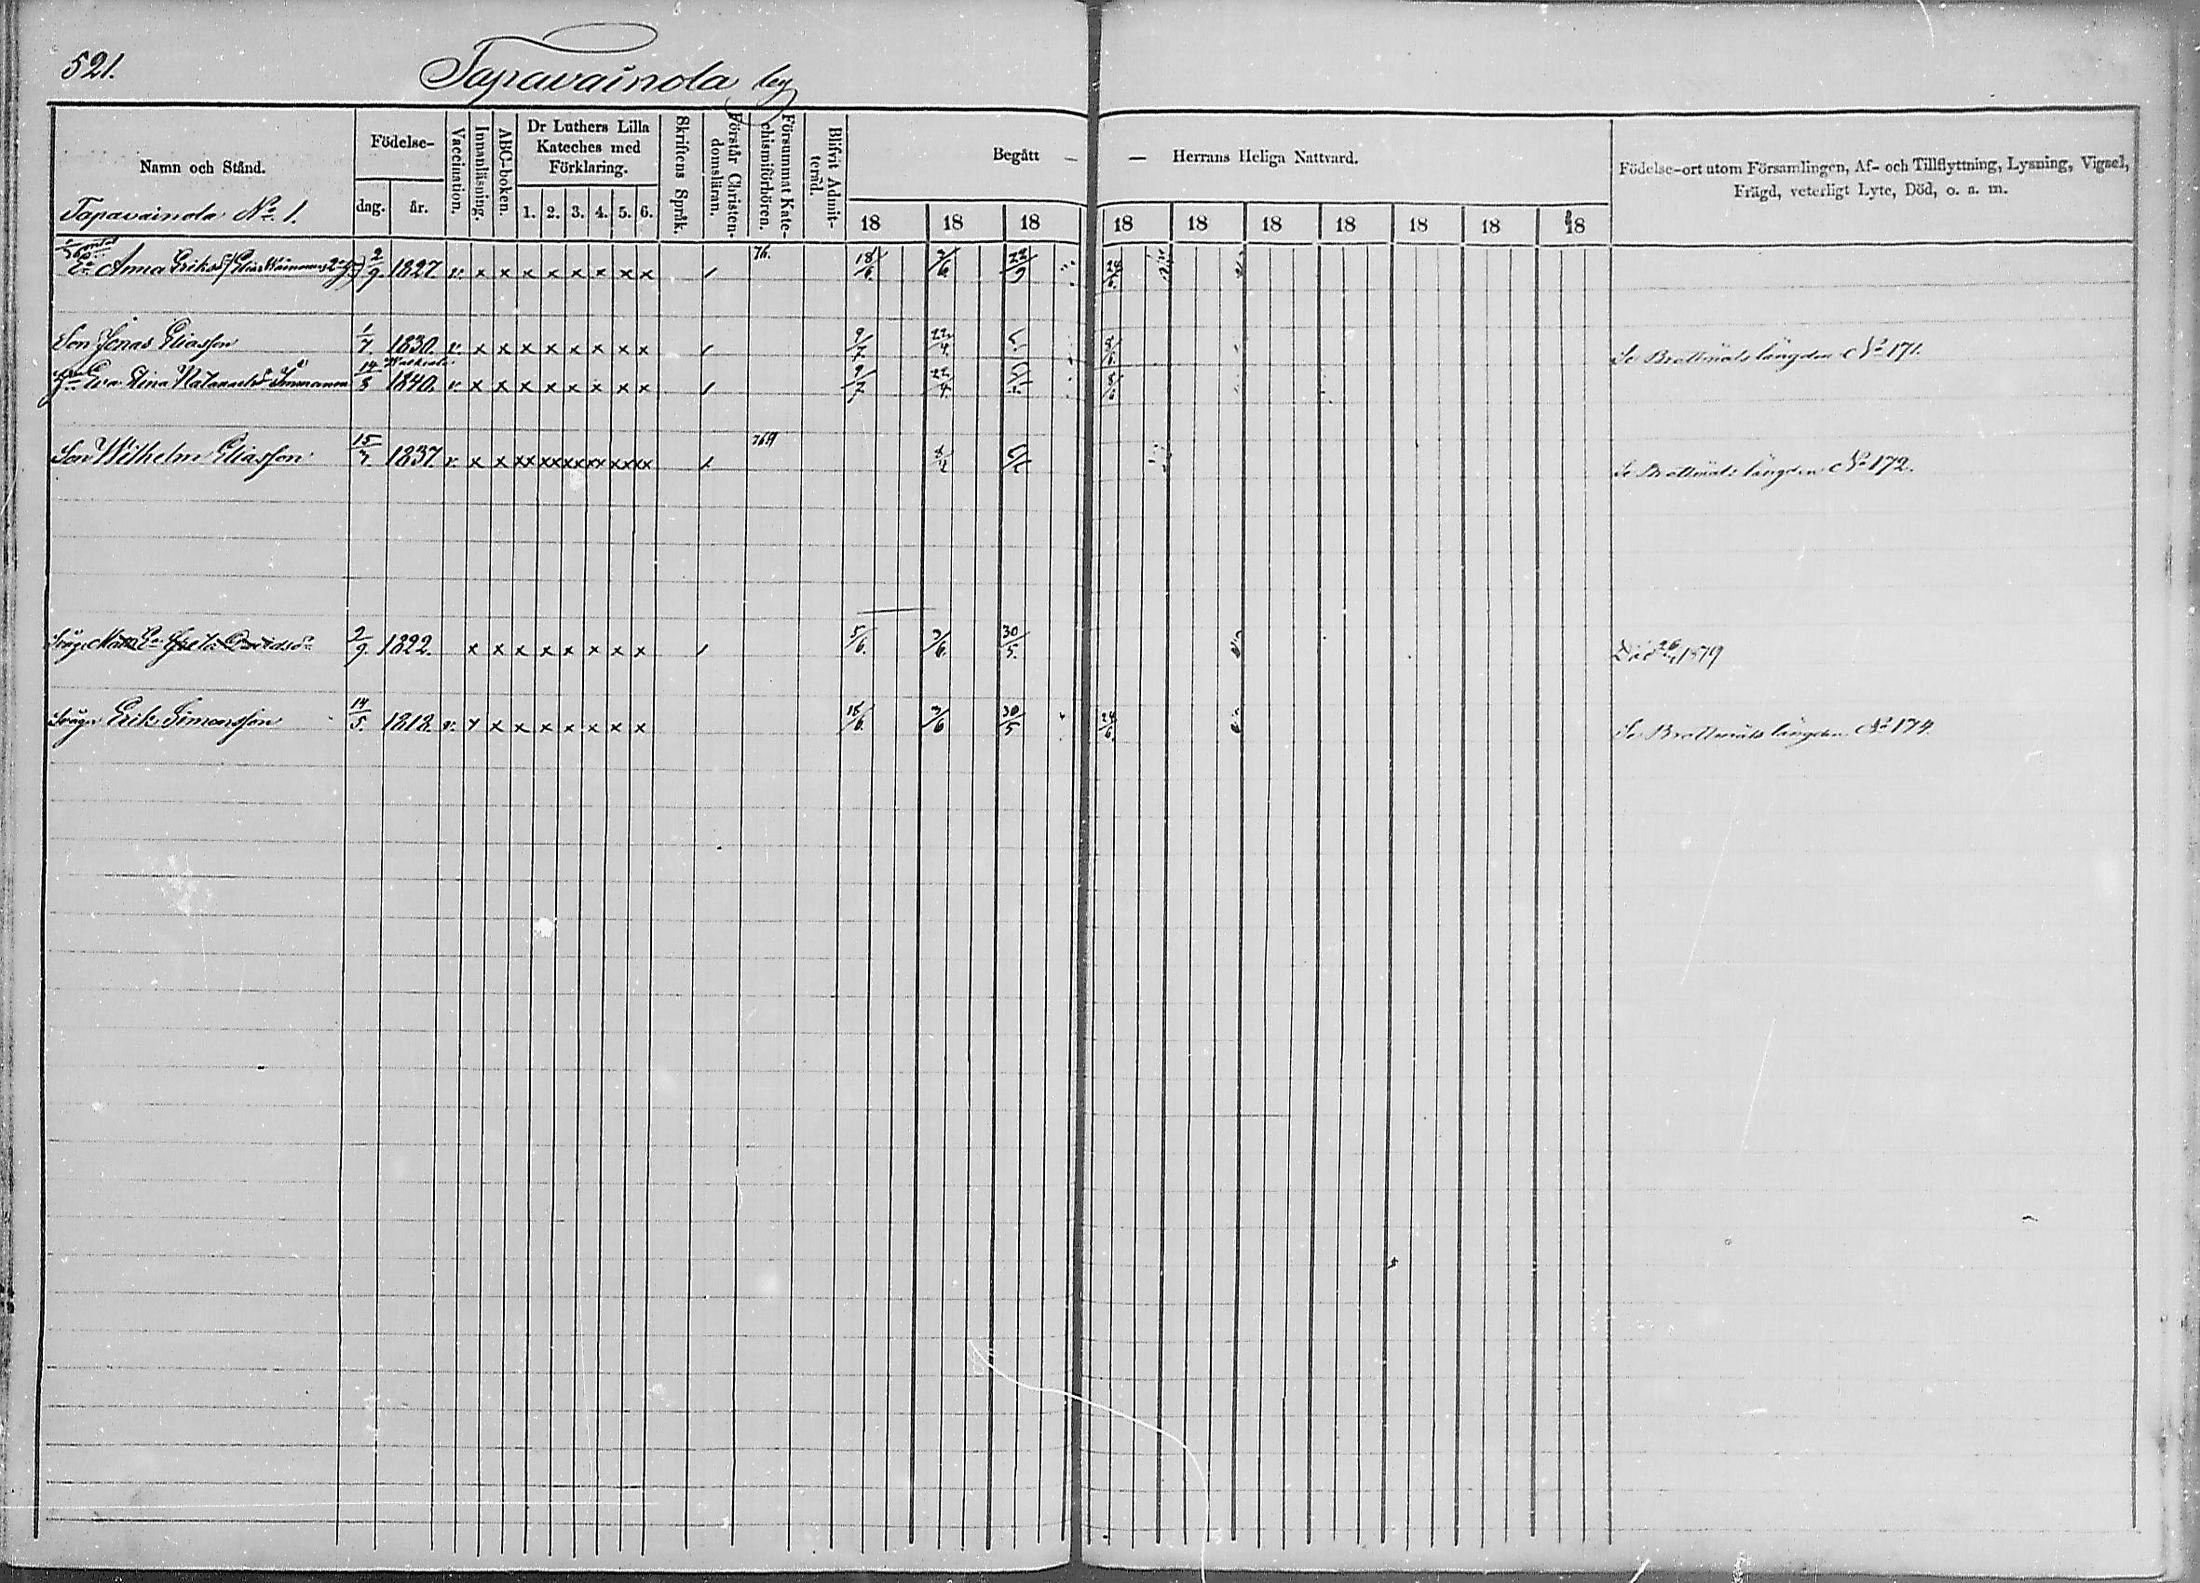 521.
Tapavainola by
Namn och Stånd.
Födelse-
dag.
år.
Vaccination.
Innanläsning.
ABC-boken.
Dr Luthers Lilla
Kateches med
Förklaring.
1. 2. 3. 4. 5. 6.
Skriftens Språk.
Förstår Christen-
domsläran.
Försummat Kate-
chismiförhören.
Blifvit Admit-
terad.
Begått — — Herrans Heliga Nattvard.
18 18 18 18 18 18 18 18 18 18
Födelse-ort utom Församlingen, Af- och Tillflyttning, Lysning, Vigsel,
Frägd, veterligt Lyte, Död, o. s. m.
Tapavainola No 1.
Ea Anna Eriksd. 2/9. 1827 v. x x x x x x x x / 76. 18/6. 3/6 22/9
Son Jonas Eliasson 1/7. 1830. v. x x x x x x x x / 9/7 22/4. 8/6. Se Brottmåls längden No 171.
Hu Eva Stina 14/8 1840. v. x x x x x x x x / 9/7 22/4. 8/6
Son Wilhelm Eliasson 15/7. 1837 v. x x xx xx xx xx xx xx / Se Brottmåls längden No 172.
Greta Davidsdr 2/9. 1822. x x x x x x x x / 5/6. 3/6. 30/5. Död 1879
Svåger Erik Simonsson 14/5. 1812. v. x x x x x x x x 18/6. 3/6 30/5 24/6. Se Brottmåls längden No 174.